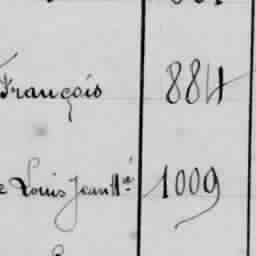 François 884
e Louis Jean Mie 1009